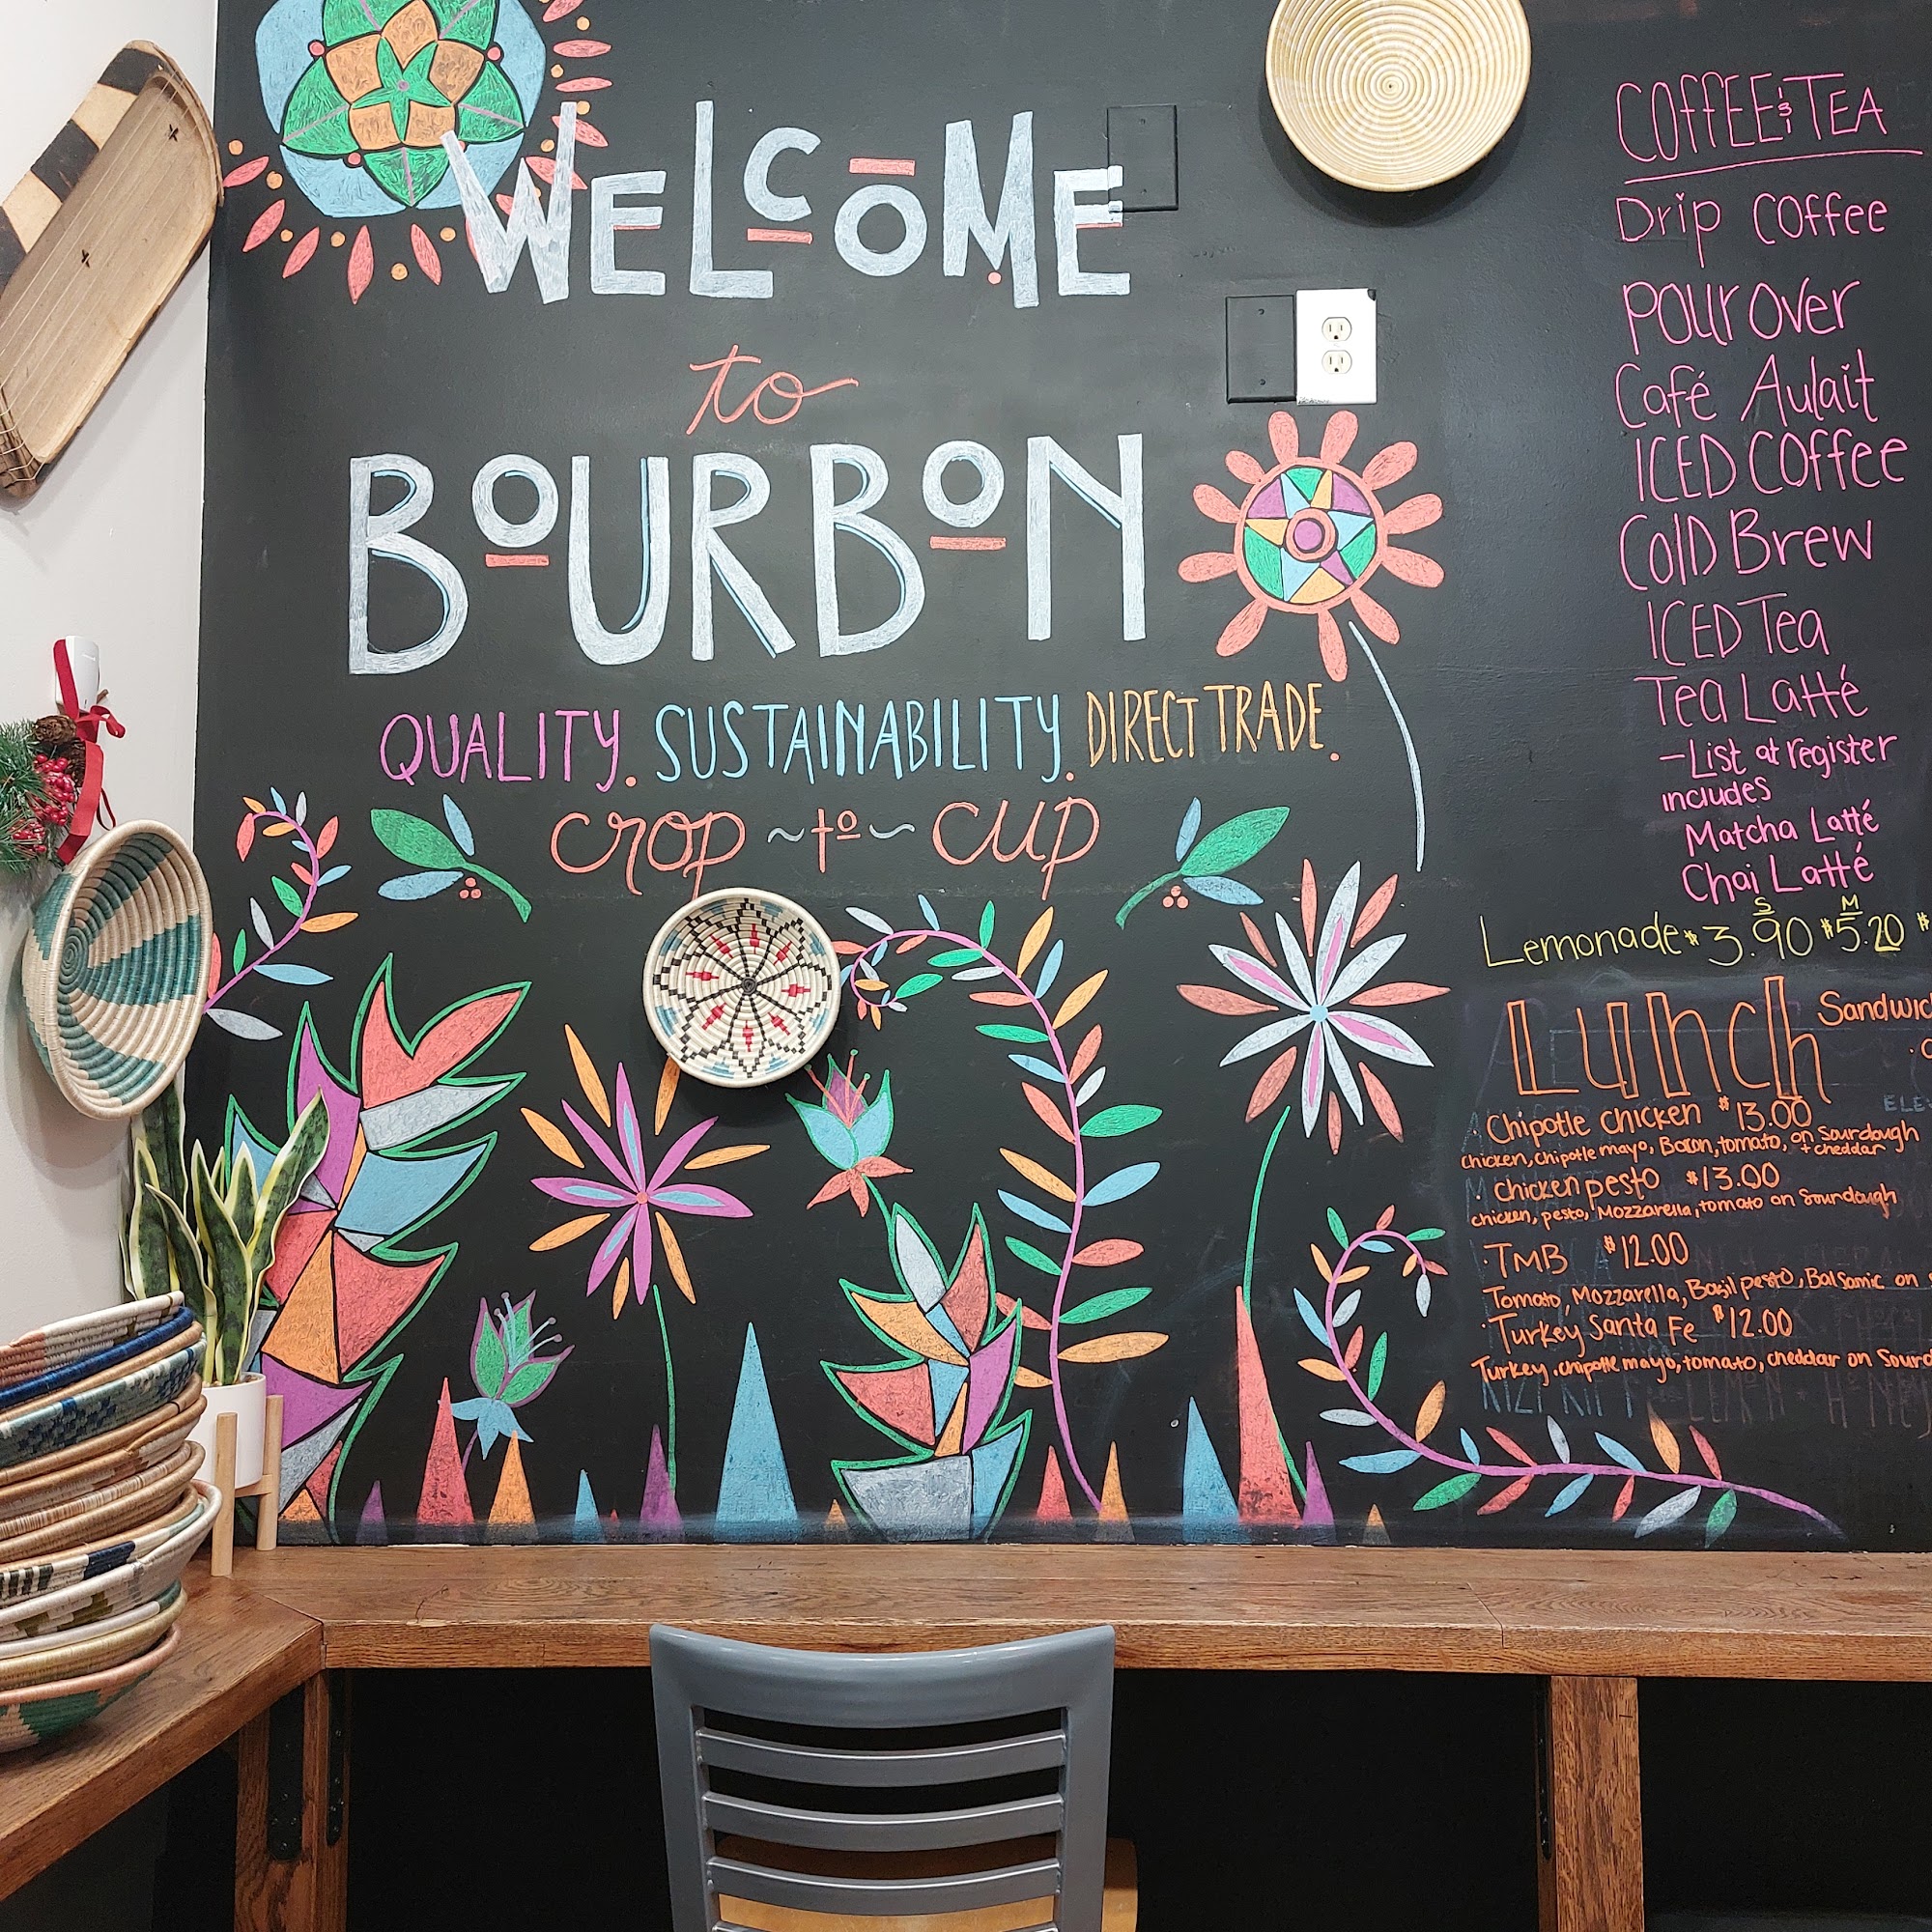 WELCOME
to
BOURBON
QUALITY. SUSTAINABILITY. DIRECT TRADE.
crop ~to~ cup
COffEE & TEA
Drip Coffee
Pour Over
Café Aulait
ICED Coffee
Cold Brew
ICED Tea
Tea Latté
-List at register
includes
Matcha Latté
Chai Latté
S M
Lemonade $3.90 $5.20 $
Lunch
· Chipotle chicken $13.00
chicken, chipotle mayo, Bacon, tomato, on Sourdough
+ cheddar
· chicken pesto $13.00
chicken, pesto, Mozzarella, tomato on Sourdough
· TMB $12.00
Tomato, Mozzarella, Basil pesto, Balsamic on
· Turkey Santa Fe $12.00
Turkey, chipotle mayo, tomato, cheddar on